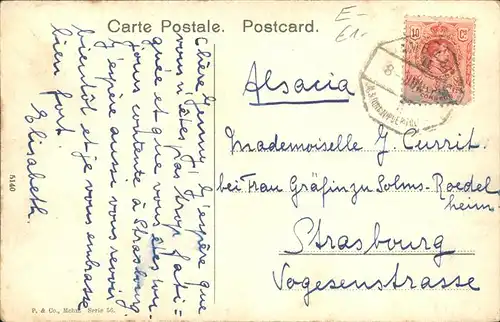 Carte Postale. Postcard.
E-
61-
10 Cs
8
Alsacia
Mademoiselle J. Currit
bei Frau Gräfin zu Solms-Roedel=
heim.
Strasbourg
Vogesenstrasse
Chère Jenny! J'espère que
vous n'êtes pas trop fati=
guée et que vous êtes
jours contente à Strasbourg.
J'espère aussi vous revoir
bientôt et je vous embrasse
bien fort.
Elisabeth.
5140
P. & Co., Serie 56.